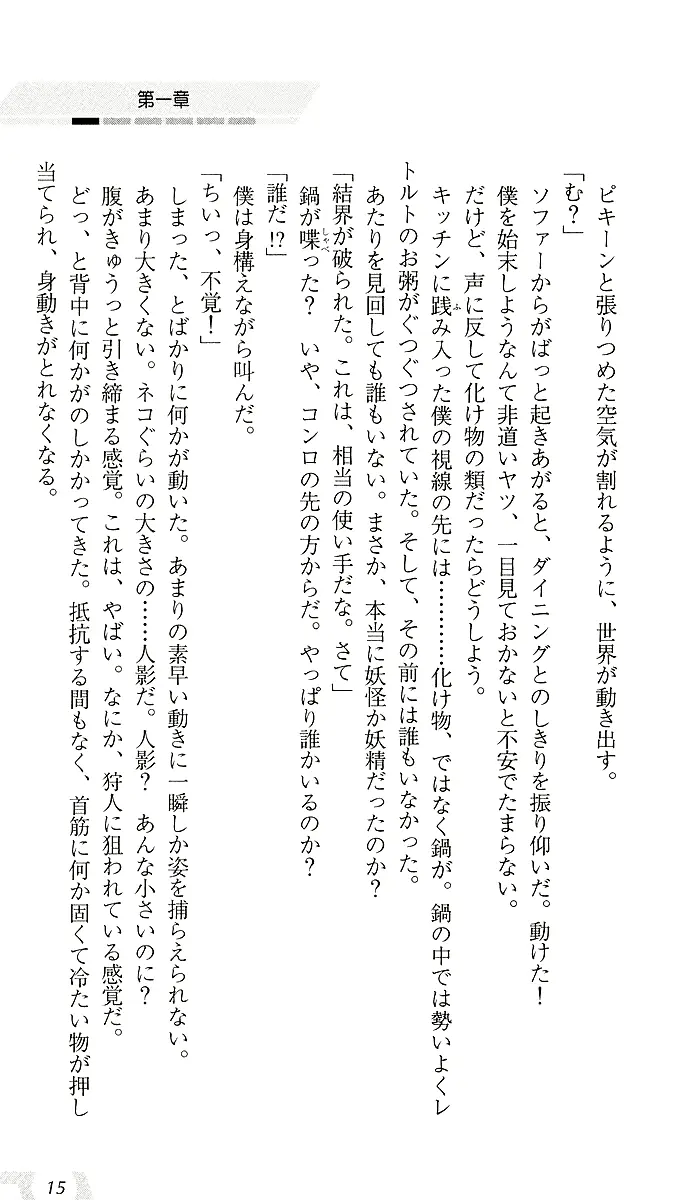 第一章
ピキーンと張りつめた空気が割れるように、世界が動き出す。
「む？」
ソファーからがばっと起きあがると、ダイニングとのしきりを振り仰いだ。動けた！
僕を始末しようなんて非道いヤツ、一目見ておかないと不安でたまらない。
だけど、声に反して化け物の類だったらどうしよう。
キッチンに践み入った僕の視線の先には…………化け物、ではなく鍋が。鍋の中では勢いよくレ
トルトのお粥がぐつぐつされていた。そして、その前には誰もいなかった。
あたりを見回しても誰もいない。まさか、本当に妖怪か妖精だったのか？
「結界が破られた。これは、相当の使い手だな。さて」
鍋が喋った？　いや、コンロの先の方からだ。やっぱり誰かいるのか？
「誰だ!?」
僕は身構えながら叫んだ。
「ちいっ、不覚！」
しまった、とばかりに何かが動いた。あまりの素早い動きに一瞬しか姿を捕らえられない。
あまり大きくない。ネコぐらいの大きさの……人影だ。人影？　あんな小さいのに？
腹がきゅうっと引き締まる感覚。これは、やばい。なにか、狩人に狙われている感覚だ。
どっ、と背中に何かがのしかかってきた。抵抗する間もなく、首筋に何か固くて冷たい物が押し
当てられ、身動きがとれなくなる。
15